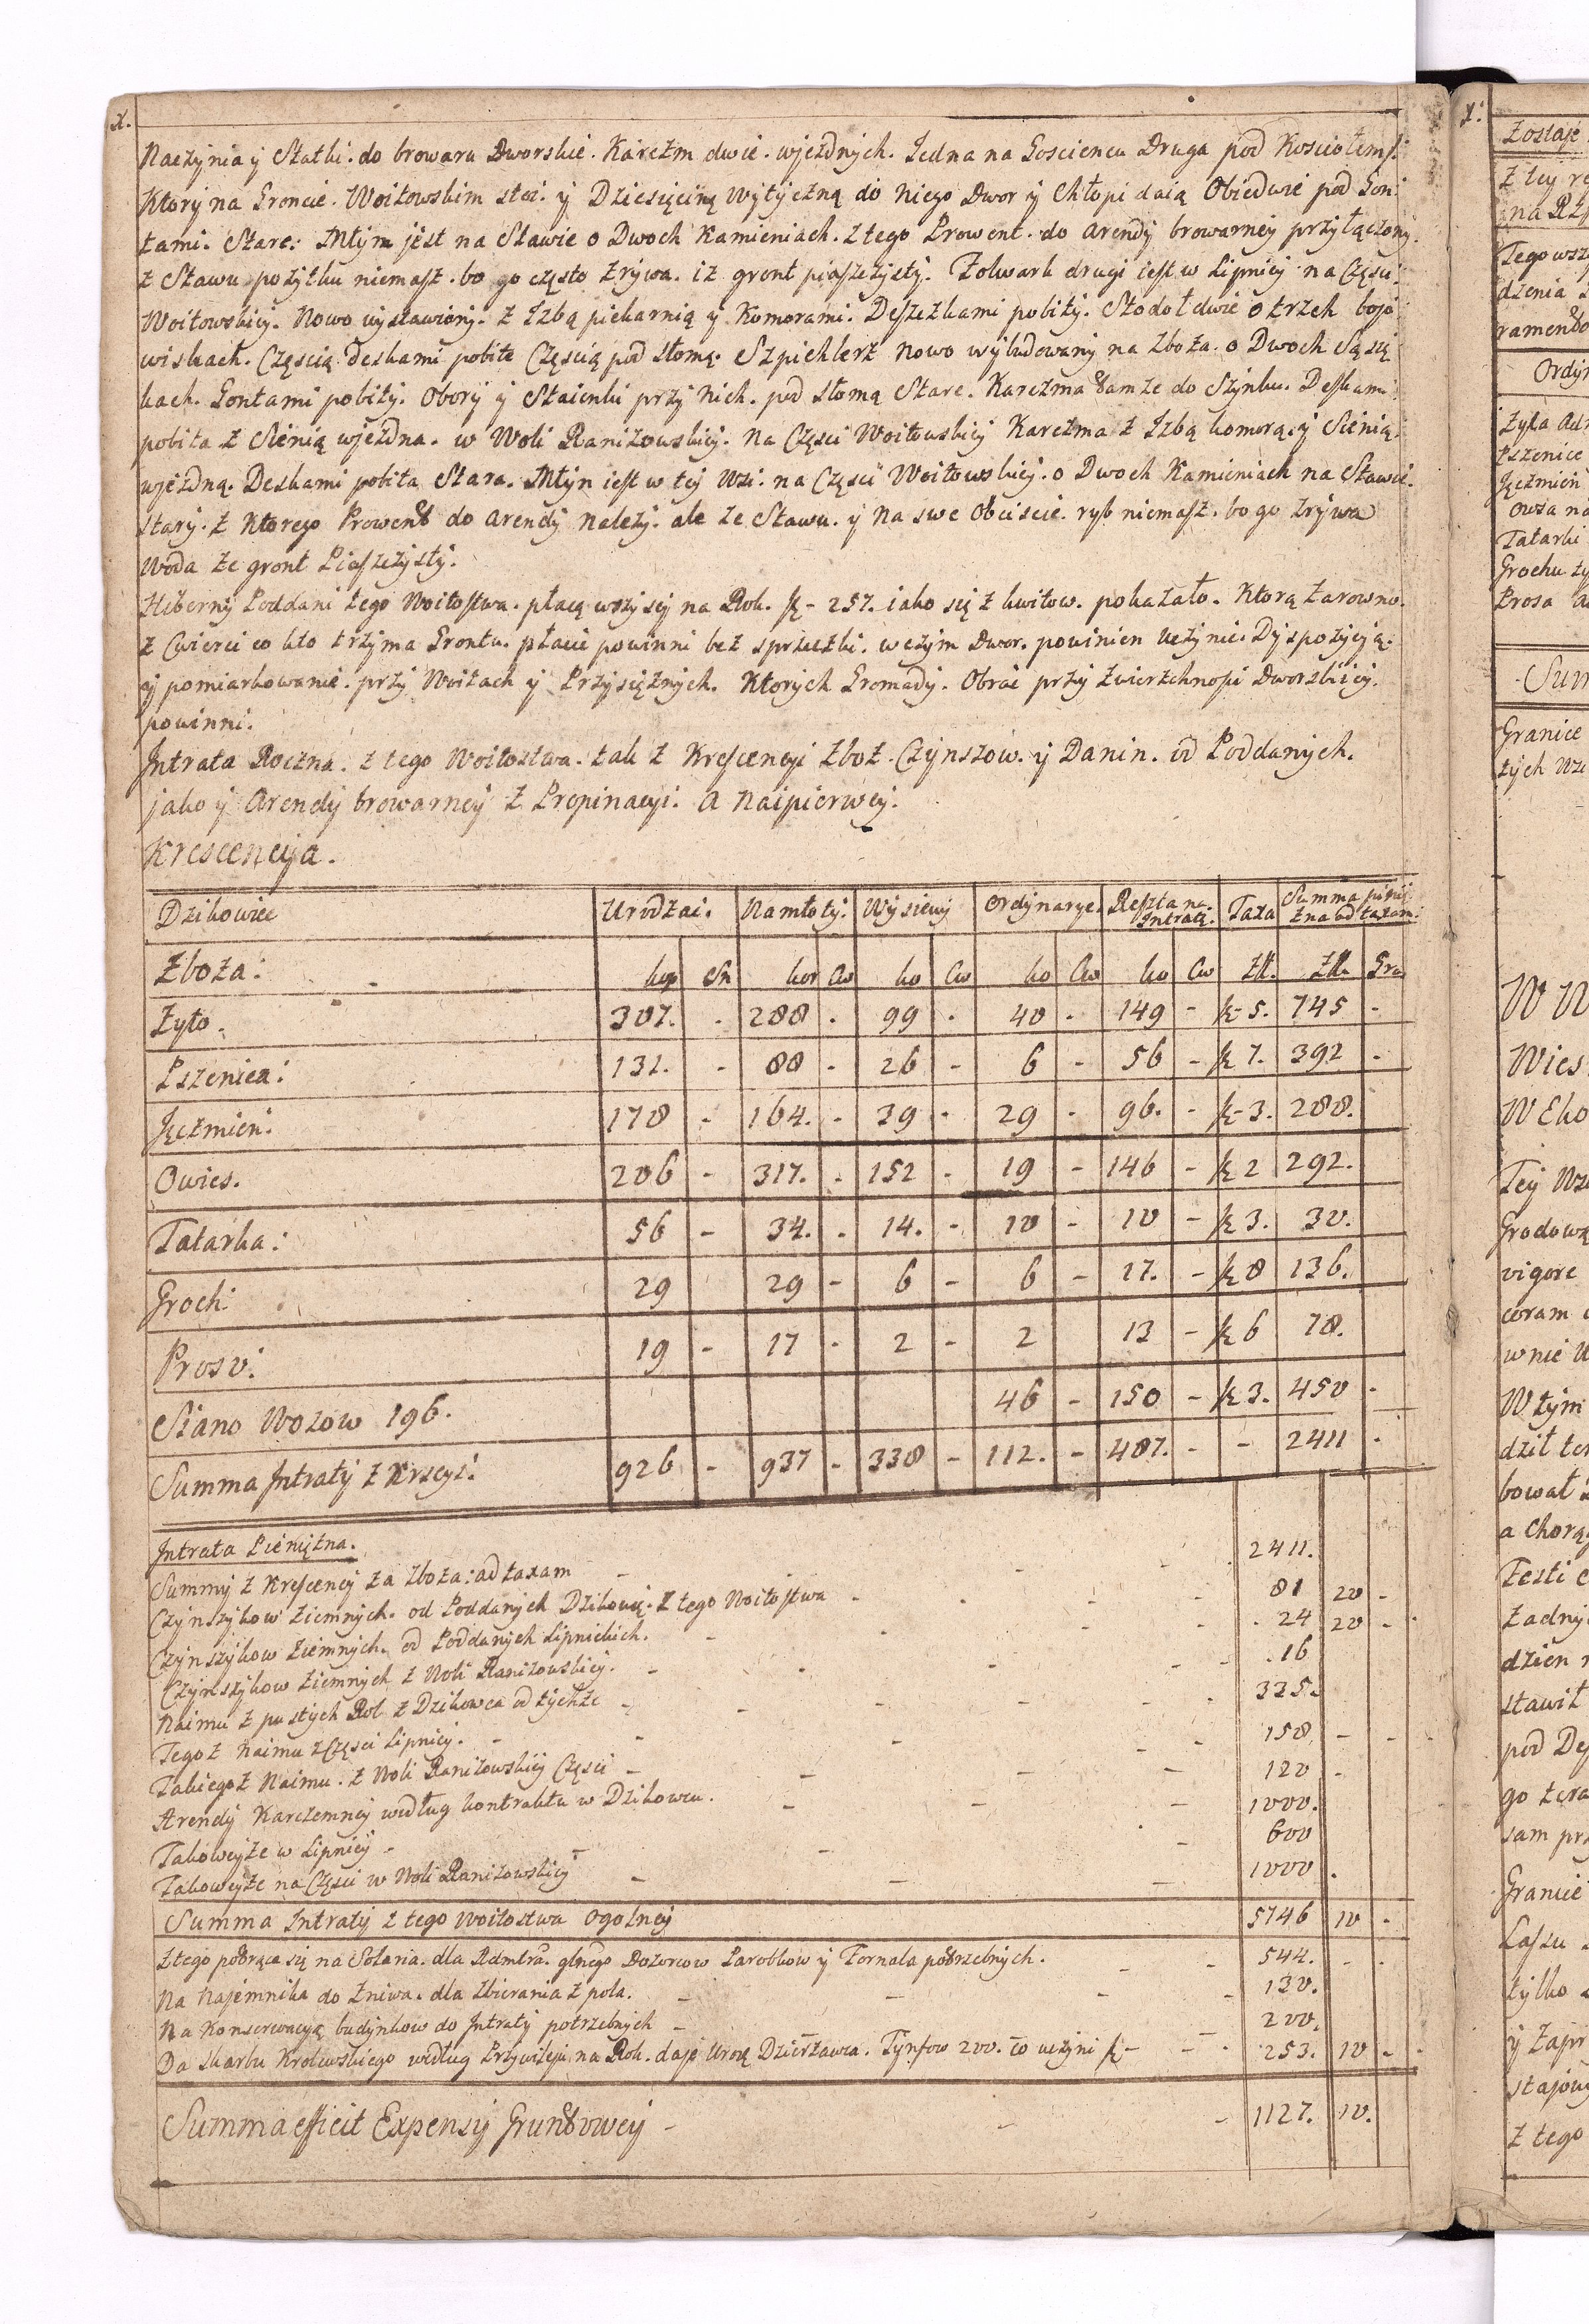 x.
Naczynia y Statki. do browaru Dworskie. Karczm dwie. wjezdnych. Jedna na Gosciencu Druga pod Kosciołem.
Ktory na Groncie. Woitowskim stoi. y Dziesięcinę wytyczną do niego Dwor y Chłopi daią Obiedwie pod Gon
tami. Stare. Młyn jest na Stawie o Dwoch Kamieniach. z tego Prowent. do arendy browarney przyłączony.
z Stawu pozytku niemasz. bo go często zrywa. iz gront piaszczysty. Folwark drugi iest w Lipnicy na Części
Woitowskiey. Nowo wystawiony. z Izbą piekarnią y Komorami. Deszczkami pobity. Stodoł dwie o trzech bojo
wiskach. Częscią deskami pobite Częscią pod słomą. Szpichlerz nowo wybudowany na Zboza. o Dwoch Sąsie
kach. Gontami pobity. Obory y Staienki przy nich. pod słomą Stare. Karczma tamze do Szynku. Deskami
pobita z Sienią wjezdna. w Woli Ranizowskiey. na Części Woitowskiey Karczma z Izbą komorą. y Sienią.
wjezdną. Deskami pobita Stara. Młyn iest w tey wsi. na Części Woitowskiey. o Dwoch Kamieniach na Stawie.
stary. z Ktorego Prowent do arendy nalezy. ale ze Stawu. y na swe obeiscie. ryb niemasz. bo go zrywa
woda ze gront Piaszczysty.
Hiberny Poddani tego Woitostwa. płacą wszyscy na Rok. fl- 257. iako się z kwitow. pokazało. Ktorą zarowno.
z Cwierci co kto trzyma Grontu. płacic powinni bez sprzeczki. w czym Dwor. powinien uczynic. Dyspozycją.
y pomiarkowanie. przy Woitach y Przysięznych. Ktorych Gromady. Obrac przy zwierzchnosci Dworskiey.
powinni.
Intrata Roczna. z tego Woitostwa. tak z Krescencyi zboz. Czynszow. y Danin. od Poddanych.
jako y Arendy browarney z Propinacyi. a Naipierwey.
Krescencyja.
Dzikowiec Urodzai. Namłoty. Wysiewy Ordynarye. Reszta na Intratę. Taxa Summa pienię zna ad taxam.
Zboza: kop Sn kor Cw ko Cw ko Cw ko Cw Zll. Zll. Gro
Zyto. 307. - 288 - 99 - 40 - 149 - fl-5. 745 -
Pszenica: 131. - 88 - 26 - 6 - 56 - fl 7. 392 -
Jęczmien: 178 - 164. - 39 - 29 - 96. - fl-3. 288.
Owies. 206 - 317. - 152 - 19 - 146 - fl 2 292.
Tatarka: 56 - 34. - 14. - 10 - 10 - fl 3. 30.
Groch: 29 29 - 6 - 6 - 17. - fl 8 136.
Proso: 19 - 17 - 2 - 2 13 - fl 6 78.
Siano Wozow 196. 46 - 150 - fl 3. 450 -
Summa Intraty z Krscyi. 926 - 937 - 338 - 112. - 487. - - 2411 -
Intrata Pienięzna.
Summy z Krescency za zboza: ad taxam - 2411.
Czynszykow ziemnych. od Poddanych Dzikowię. z tego Woitostwa - 81 20 -
Czynszykow ziemnych. od Poddanych Lipnickich. - 24 20 -
Czynszykow ziemnych z Woli Ranizowskiey. - 16
Naimu z pustych Rol z Dzikowca od tychze - 335.
Tegoz Naimu z Częsci Lipnicy. - 158 -
Takiegoz Naimu. z Woli Ranizowskiey Częsci - 120 -
Arendy Karczemney według kontraktu w Dzikowcu. - 1000.
Takoweyze w Lipnicy - 600
Takoweyze na Częsci w Woli Ranizowskiey - 1000.
Summa Intraty z tego Woitostwa Ogolney 5746 10 -
Z tego potrąca się na Solaria. dla Admtra. głnego Dozorcow Parobkow y Fornala potrzebnych. - 544. -
Na Najemnika do zniwa. dla zbierania z pola. - 130.
Na Konserwacyą budynkow do Intraty potrzebnych - 200.
Da Skarbu Krolewskiego według Przywileju na Rok. daje Urozę Dzierzawca. Tynfow 200. co uczyni fl - 253. 10 -
Summa efficit Expensy Gruntowey - 1127. 10.
x.
Zostaje
z tey
na
Ordyn
Pszenice
Jęczmien
Owsa na
Tatarki
Grochu
Prosa
Sum
Granice
tych
Wies
Tey
vigore
coram
w nie
W tym
a
dzien
pod
sam
Granice
Lassu
tylko
z tego